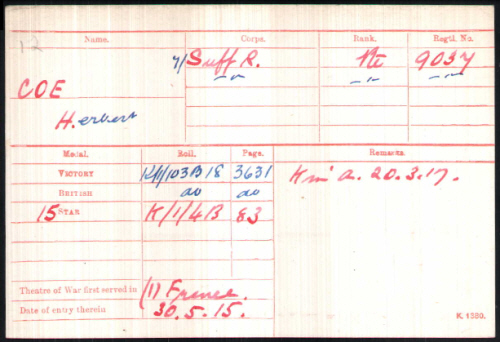 12
Name. Corps. Rank. Regtl. No.
7/Suff R. Pte 9037
COE -"- -"- -"-
Herbert
Medal. Roll. Page. Remarks.
VICTORY K/1/103B18 3631 K in a. 20.3.17.
BRITISH do do
15 STAR K/1/4B 83
Theatre of War first served in (1) France.
Date of entry therein 30.5.15.
K. 1380.